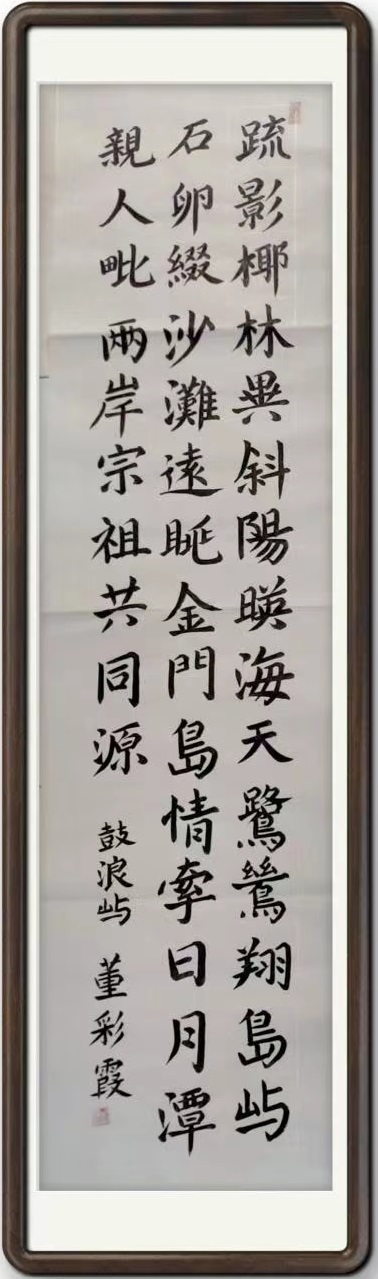 疏影椰林異斜陽暎海天鷺鷥翔島屿
石卵綴沙灘遠眺金門島情牽日月潭
親人毗兩岸宗祖共同源 鼓浪屿 董彩霞